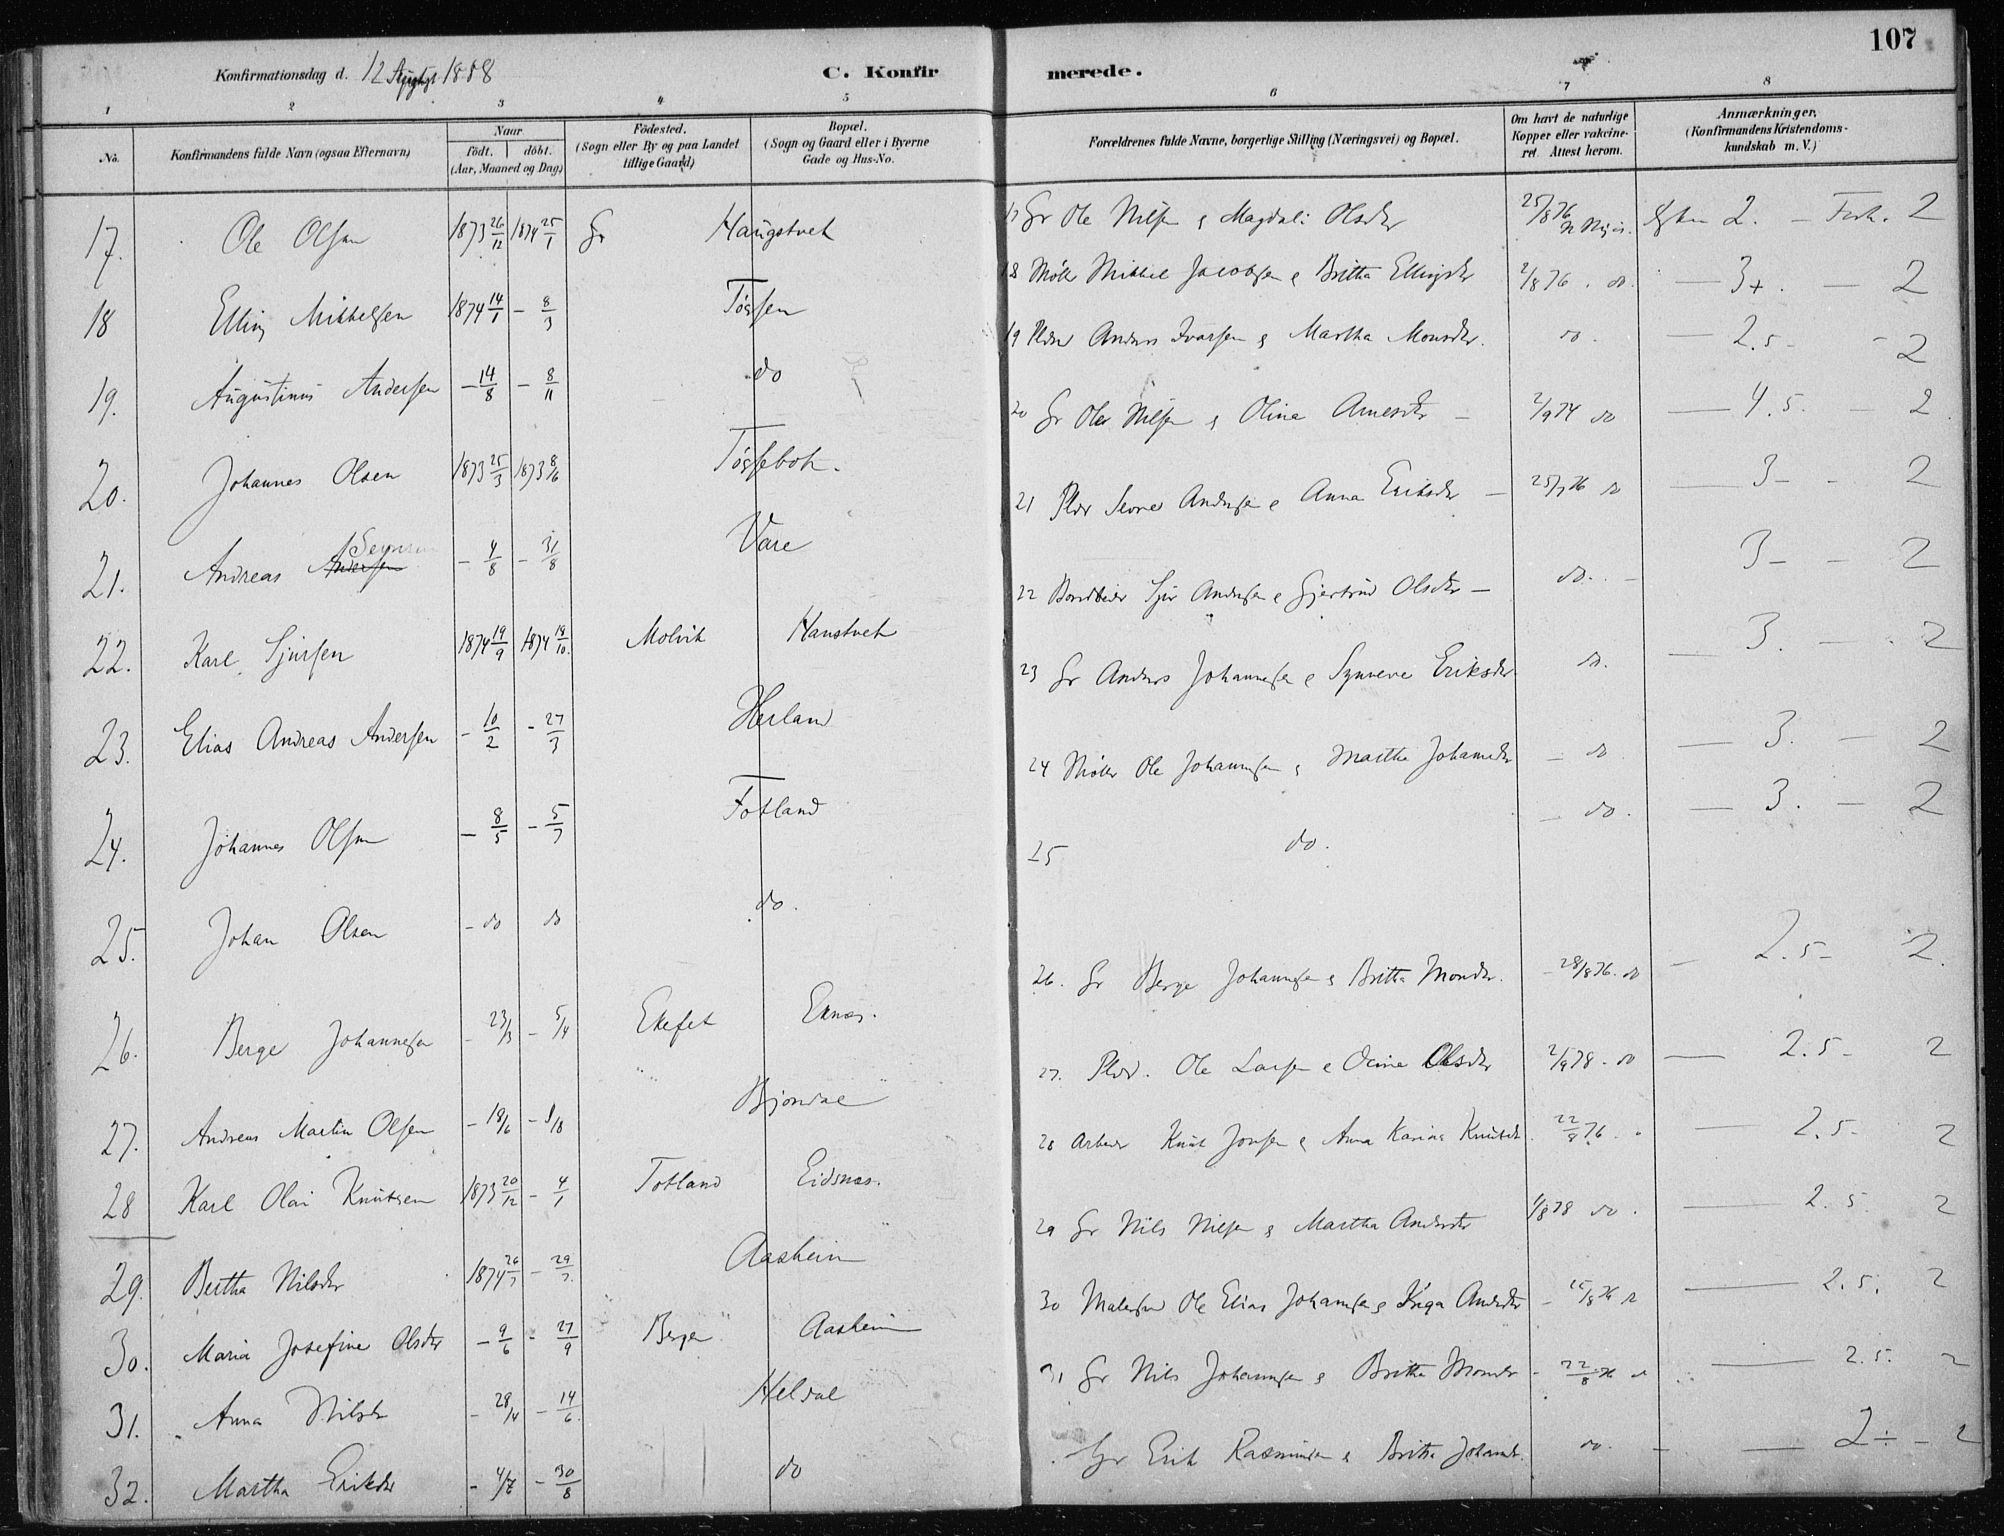 107
Konfirmationsdag d. 12 August 1888
C. Konfirmerede.
1 2 3 4 5 6 7 8
No. Konfirmandens fulde Navn (ogsaa Efternavn) Naar födt. döbt. (Aar, Maaned og Dag) Födested. (Sogn eller By og paa Landet tillige Gaard) Bopæl. (Sogn og Gaard eller i Byerne Gade og Hus-No. Forældrenes fulde Navne, borgerlige Stilling (Næringsvei) og Bopæl. Om havt de naturlige Kopper eller vakcineret. Attest herom. Anmærkninger. (Konfirmandens Kristendomskundskab m. V.)
17. Ole Olsen 1873 26/12 1874 25/1 Gr Haugstvet 17 Gr Ole Nilsen & Magdali Olsdtr 25/8 76 2. — Forh. 2
18 Elling Mikkelsen 1874 14/1 – 8/3 Tøssen 18 Mikkel Jacobsen & Britha Ellingsdtr 2/8 76 . do. — 3+. — 2
19. Augustinus Andersen – 14/8 – 8/11 do 19 Plds Anders Ivarsen & Martha Monsdtr. do. — 2.5 – 2
20. Johannes Olsen 1873 25/3 1873 8/6 Tøssebot. 20 Gr Ole Nilsen & Olina Arnesdtr — 2/9 74 do — 4.5. 2
21. Andreas Andersen – 4/8 – 31/8 Vare 21 Plds Andersen & Anna Eriksdtr — 25/7 76 do — 3 – – 2
22. Karl Sjursen 1874 19/9 1874 18/10. Molvik Haustvet 22 Sjur Andersen & Gjertrud Olsdtr — do. – 3 – – 2
23. Elias Andreas Andersen – 10/2 – 27/3 Herland 23 Gr Anders Johannesen & Synneve Eriksdtr do. — 3. — 2
24. Johannes Olsen – 8/5 – 5/7 Totland 24 Ole Johannesen & Martha Johannesdtr – do — 3. — 2
25. Johan Olsen – do do do. 25 do. – do. — 3. — 2
26. Berge Johannesen – 23/3 – 5/4 Ekefet Eknæs. 26. Gr Berge Johannesen & Britta Monsdtr. – 28/8 76. do — 2.5 – 2.
27. Andreas Martin Olsen – 18/6 – 9/8 Bjondal 27. Plds. Ole Larsen & Olsdtr 2/9 78 – do — 2.5 – 2
28 Karl Olai Knutsen 1873 20/12 – 4/1 Totland Eidsnæs. 28 Arbeider Knut Jonsen & Anna Karina Knutsdtr. 22/8 76. — 2.5. 2
29. Bertha Nilsdtr 1874 26/7 – 29/7. Aasheim 29 Gr Nils Nilsen & Martha Andersdtr 1/8 78 do. — 2.5. 2
30. Maria Josefine Olsdtr – 9/6 – 27/9 Bergen Aasheim 30 Ole Elias Johannesen & Inga Andersdtr – 15/8 76 do — 2.5. 2
31. Anna Nilsdtr – 28/4 – 14/6. Heldal 31 Gr Nils Johannesen & Britha Monsdtr – 22/8 76 do — 2.5. 2
32. Martha Eriksdtr – 4/7 – 30/8 do Gr Erik Rasmussen & Britha Johansdtr. do. – — 2÷ – 2